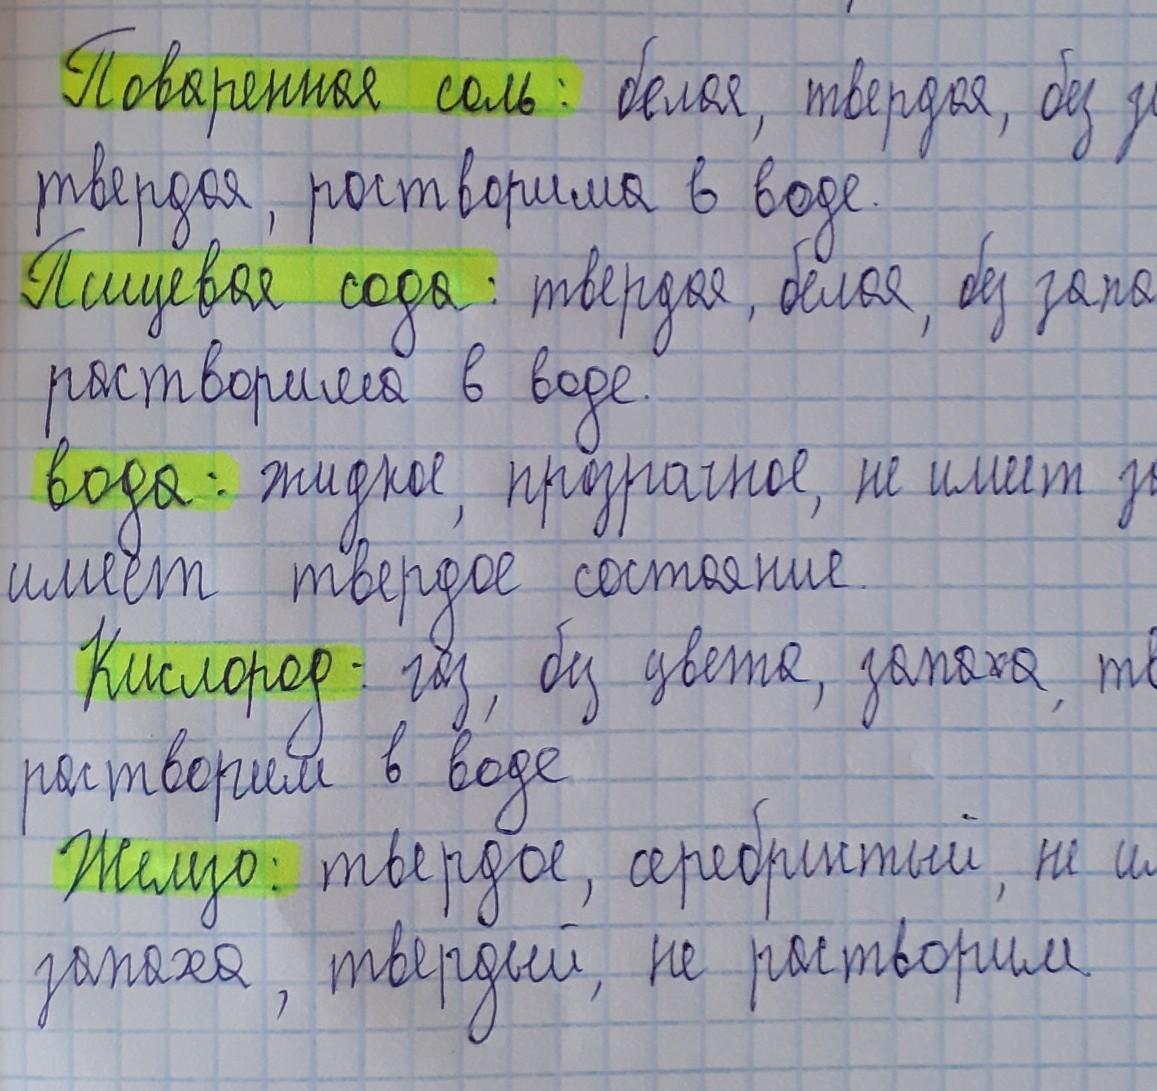 Поваренная соль: белая, твердая, без за
твердая, растворима в воде.
Пищевая сода: твердая, белая, без запа
растворима в воде.
вода: жидкое, прозрачное, не имеет за
имеет твердое состояние.
Кислород: газ, без цвета, запаха, тв
растворим в воде
Железо: твердое, серебристый, не им
запаха, твердый, не растворим